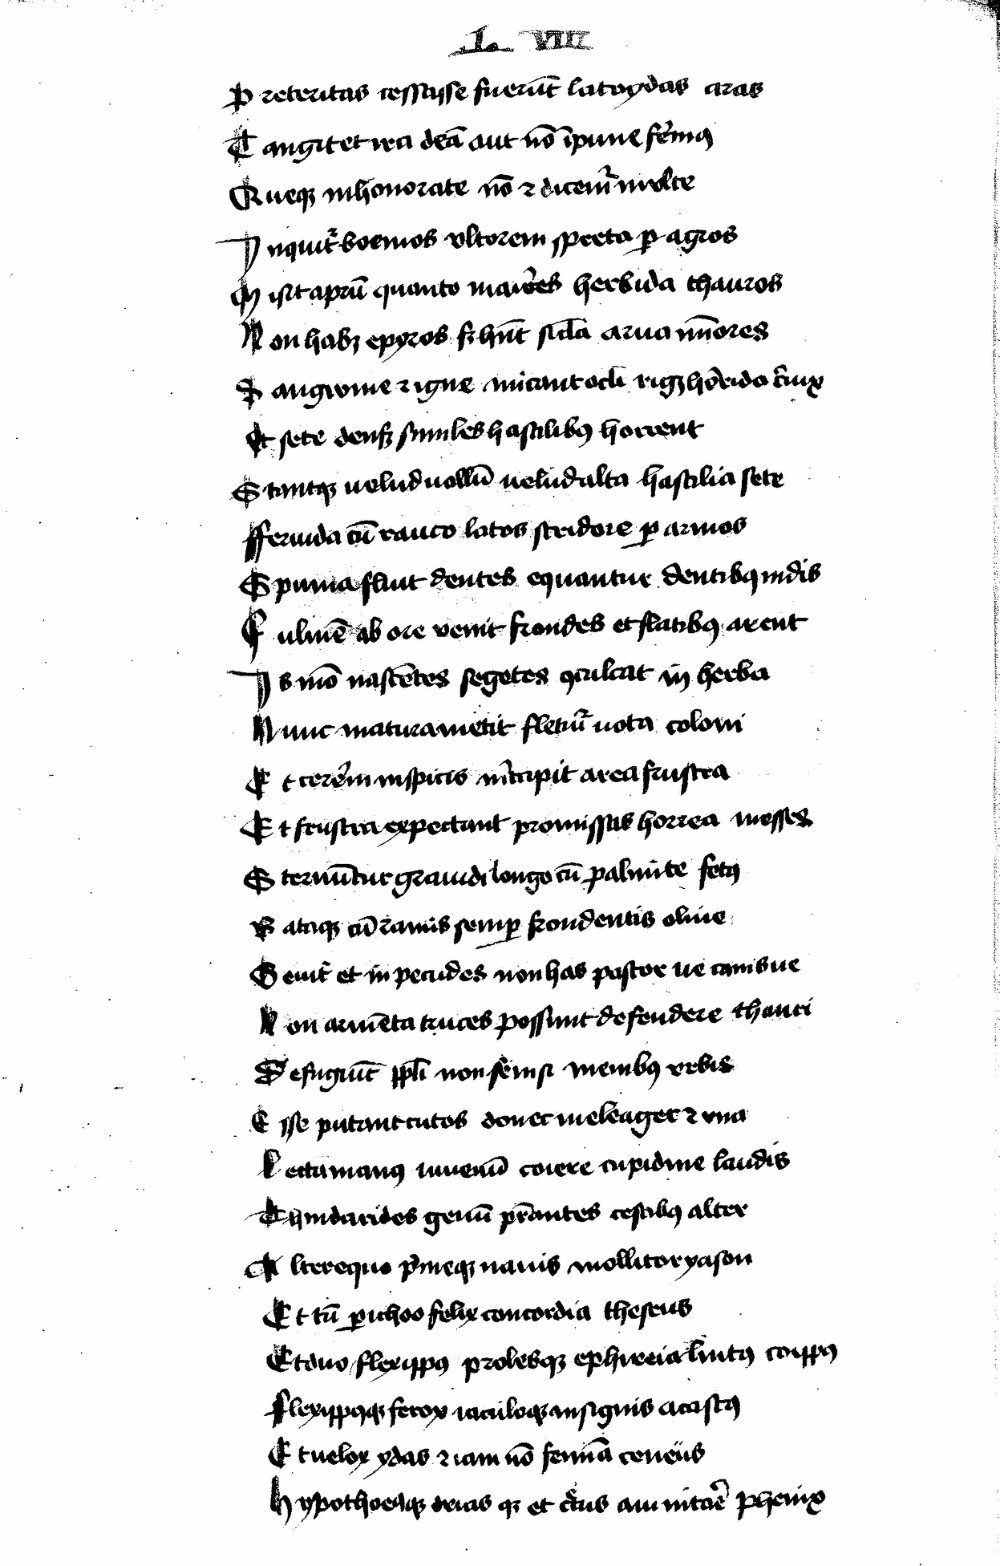 L VIII
P reteritas cessasse ferũt latoydas aras
T angit et ira deã aut nõ ĩpune feremꝰ
Q ueqꝫ inhonorate nõ ⁊ dicemur inulte
I nquit
 vltorem spreta ꝑ agros
M isit aprũ quanto maiores herbida thauros
N on habꝫ epyros sꝫ hñt sicla arua mĩores
S anguine ⁊ igne micant ocli rigꝫ horrida ceruix
Et sete densis similes hastilibꝰ horrent
S tantqꝫ uelud uallũ uelud alta hastilia sete
fferuida cũ rauco latos stridore ꝑ armos
S puma fluit dentes equantur dentibꝰ indis
F ulmẽ ab ore venit frondes et flatibꝰ arent
I s mõ nascẽtes segetes ꝯculcat in herba
N unc matura metit fletur uota coloni
E t cererem in spicis intercipit area frustra
E t frustra expectant promissas horrea messes
S ternũtur grauidi longo cũ palmite fetꝰ
B ataqꝫ cũ ramis semꝑ frondentis oliue
S euit et in pecudes non has pastor ue canisue
N on armẽta truces possunt defendere thauri
D efugiũt ppli non se nisi menibꝰ vrbis
E sse putant tutos donec meleager ⁊ vna
L ecta manꝰ iuuenũ coiere cupidine laudis
T hindarides gemi prestantes cestibꝰ alter
A lter equo primeqꝫ nauis mollitor yason
E t cũ perithoo felix concordia theseus
E t duo flexippꝰ prolesqꝫ
F lexippusqꝫ ferox iaculoqꝫ insignis acastꝰ
E t uelox ydas ⁊ iam nõ femĩa ceneus
H ypothousqꝫ drias qꝫ et cretus amintore phenix